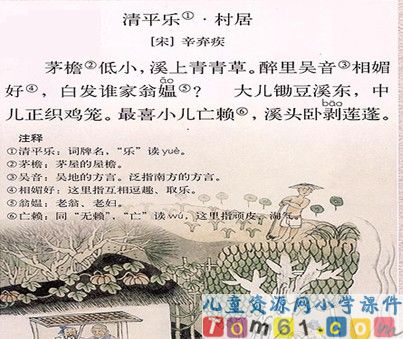 清平乐①·村居
[宋] 辛弃疾
茅檐②低小，溪上青青草。醉里吴音③相媚
好④，白发谁家翁媪⑤ǎo？ 大儿锄豆溪东，中
儿正织鸡笼。最喜小儿亡赖⑥，溪头卧剥bāo莲蓬。
注释
①清平乐：词牌名，“乐”读yuè。
②茅檐：茅屋的屋檐。
③吴音：吴地的方言。泛指南方的方言。
④相媚好：这里指互相逗趣、取乐。
⑤翁媪：老翁、老妇。
⑥亡赖：同“无赖”，“亡”读wú，这里指顽皮、淘气。
儿童资源网小学课件
Tom61.com